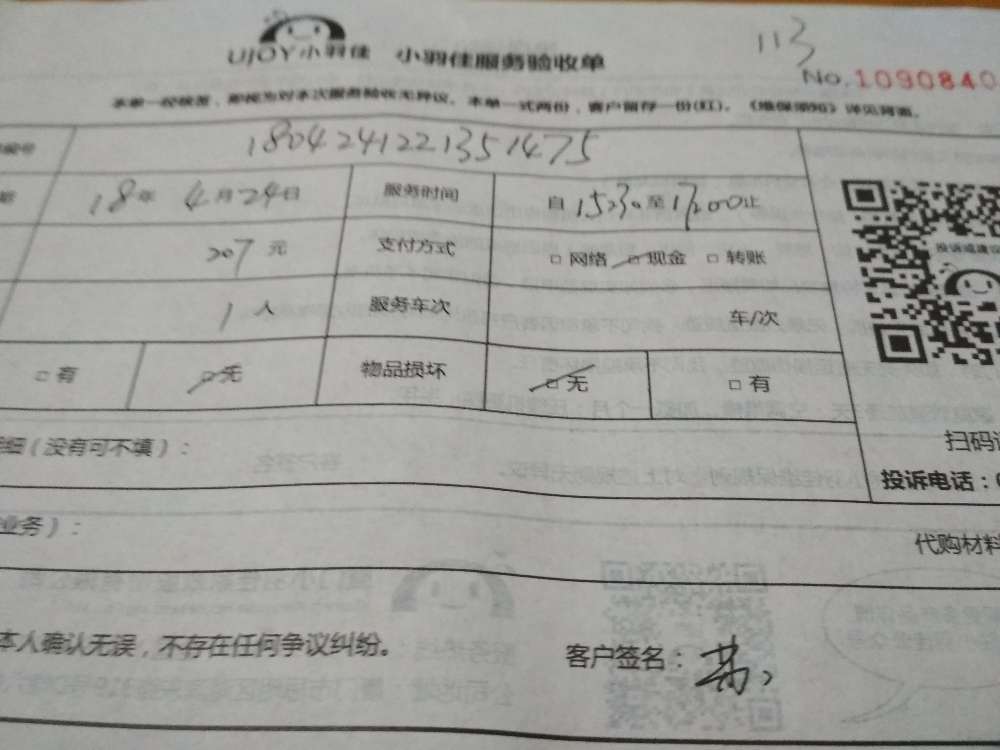 113
UJOY小羽佳 小羽佳服务验收单
No.1090840
本单一经核签，即视为对本次服务验收无异议。本单一式两份，客户留存一份(红)。《维保须知》详见背面。
编号 1804241221351475
18年4月24日 服务时间 自15:30至17:00止
207元 支付方式 □网络 □现金 □转账
投诉或建议
1人 服务车次 车/次
□有 □无 物品损坏 □无 □有
细(没有可不填)：
扫码
投诉电话：0
业务)：
代购材料
本人确认无误，不存在任何争议纠纷。
客户签名：